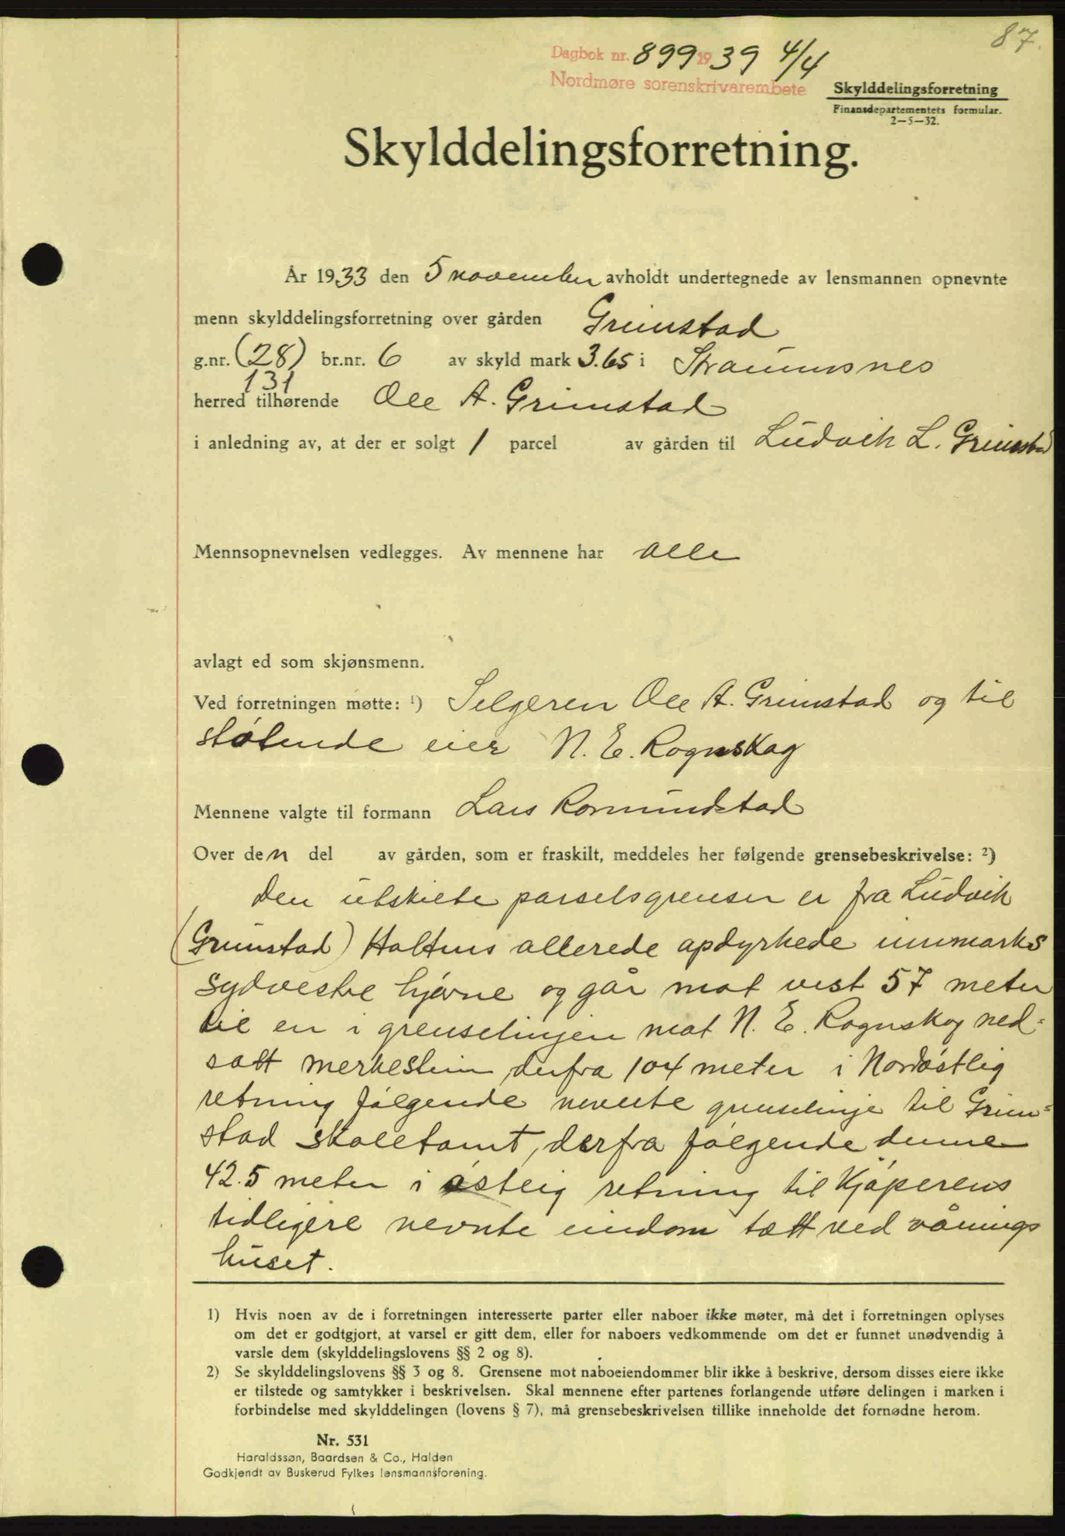 87.
Dagbok nr. 899 1939 4/4
Nordmøre sorenskrivarembete
Skylddelingsforretning
Finansdepartementets formular.
2—5—32.
Skylddelingsforretning.
År 1933 den 5 november avholdt undertegnede av lensmannen opnevnte
menn skylddelingsforretning over gården Grimstad
g.nr. (28) br.nr. 6 av skyld mark 3.65 i Straumsnes
131
herred tilhørende Ole A. Grimstad
i anledning av, at der er solgt 1 parcel av gården til Ludvik L. Grimstad
Mennsopnevnelsen vedlegges. Av mennene har alle
avlagt ed som skjønsmenn.
Ved forretningen møtte: ¹) Selgeren Ole A. Grimstad og til
støtende eier N. E. Rognskog
Mennene valgte til formann Lars Romundstad
Over den del av gården, som er fraskilt, meddeles her følgende grensebeskrivelse: ²)
Den utskilte parselsgrenser er fra Ludvik
(Grimstad) Holtens allerede opdyrkede innmarks
sydvestre hjørne og går mot vest 57 meter
til en i grenselinjen mot N. E. Rognskog ned-
satt merkestein, derfra 104 meter i Nordøstlig
retning følgende nevnte grenselinje til Grim=
stad skoletomt, derfra følgende denne
42.5 meter i østlig retning til Kjøperens
tidligere nevnte eiendom tett ved vånings
huset.
1) Hvis noen av de i forretningen interesserte parter eller naboer ikke møter, må det i forretningen oplyses
om det er godtgjort, at varsel er gitt dem, eller for naboers vedkommende om det er funnet unødvendig å
varsle dem (skylddelingslovens §§ 2 og 8).
2) Se skylddelingslovens §§ 3 og 8. Grensene mot naboeiendommer blir ikke å beskrive, dersom disses eiere ikke
er tilstede og samtykker i beskrivelsen. Skal mennene efter partenes forlangende utføre delingen i marken i
forbindelse med skylddelingen (lovens § 7), må grensebeskrivelsen tillike inneholde det fornødne herom.
Nr. 531
Haraldssøn, Baardsen & Co., Halden
Godkjendt av Buskerud Fylkes lensmannsforening.